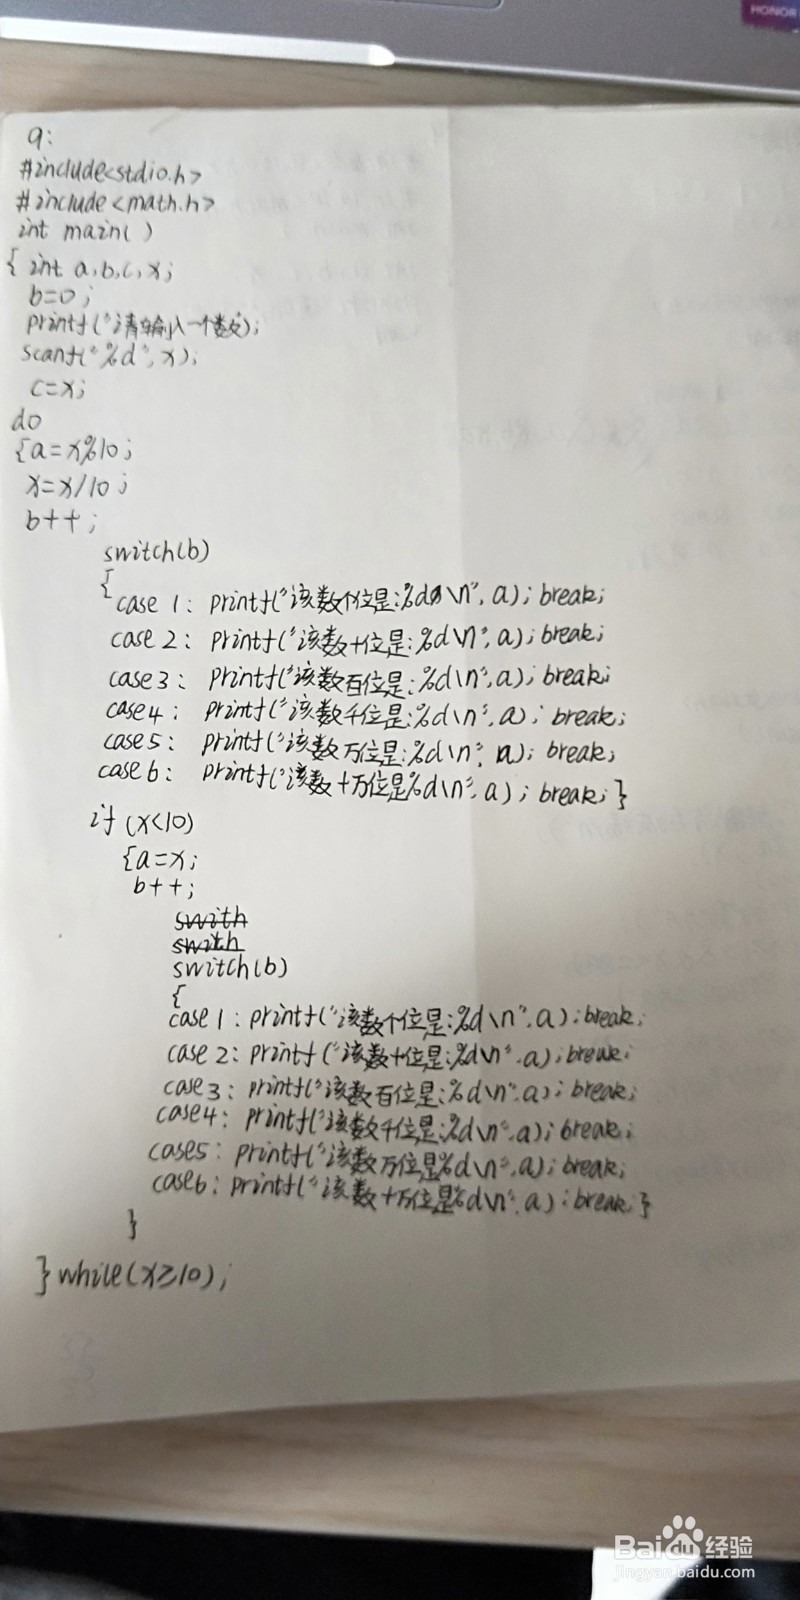 HONOR
9:
#include<stdio.h>
#include<math.h>
int main( )
{ int a,b,c,x;
b=0;
printf("请输入一个数");
scanf("%d",x);
c=x;
do
{a=x%10;
x=x/10;
b++;
switch(b)
{
case 1: printf("该数个位是:%d\n",a);break;
case 2: printf("该数十位是:%d\n",a);break;
case 3: printf("该数百位是:%d\n",a);break;
case 4: printf("该数千位是:%d\n",a);break;
case 5: printf("该数万位是:%d\n",a);break;
case 6: printf("该数十万位是%d\n",a);break;}
if (x<10)
{a=x;
b++;
swith
swith
switch(b)
{
case 1: printf("该数个位是:%d\n",a);break;
case 2: printf("该数十位是:%d\n",a);break;
case 3: printf("该数百位是:%d\n",a);break;
case 4: printf("该数千位是:%d\n",a);break;
case 5: printf("该数万位是%d\n",a);break;
case 6: printf("该数十万位是%d\n",a);break;}
}
}while(x≥10);
Baidu经验
jingyan.baidu.com